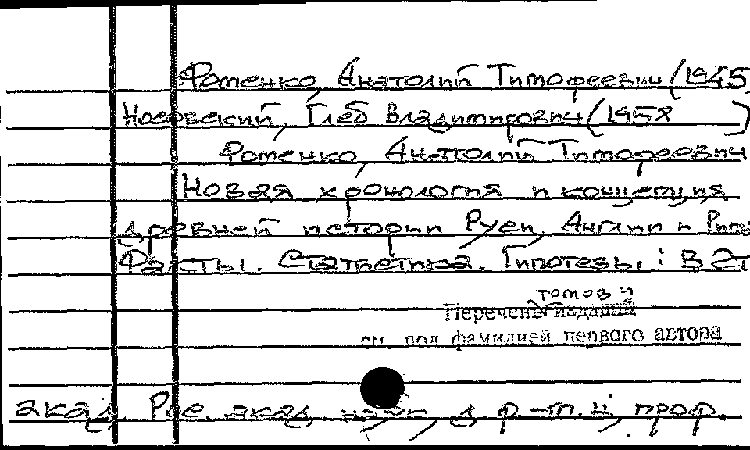 Фоменко, Анатолий Тимофеевич (1945
Носовский, Глеб Владимирович (1958 )
Фоменко, Анатолий Тимофеевич
Новая хронология и концепция
древней истории Руси, Англии и Рима
Факты. Статистика. Гипотезы. : В 2т
томов и
Перечень издания
см. под фамилией первого автора
акад. Рос. акад. наук, д. ф.-м. н., проф.